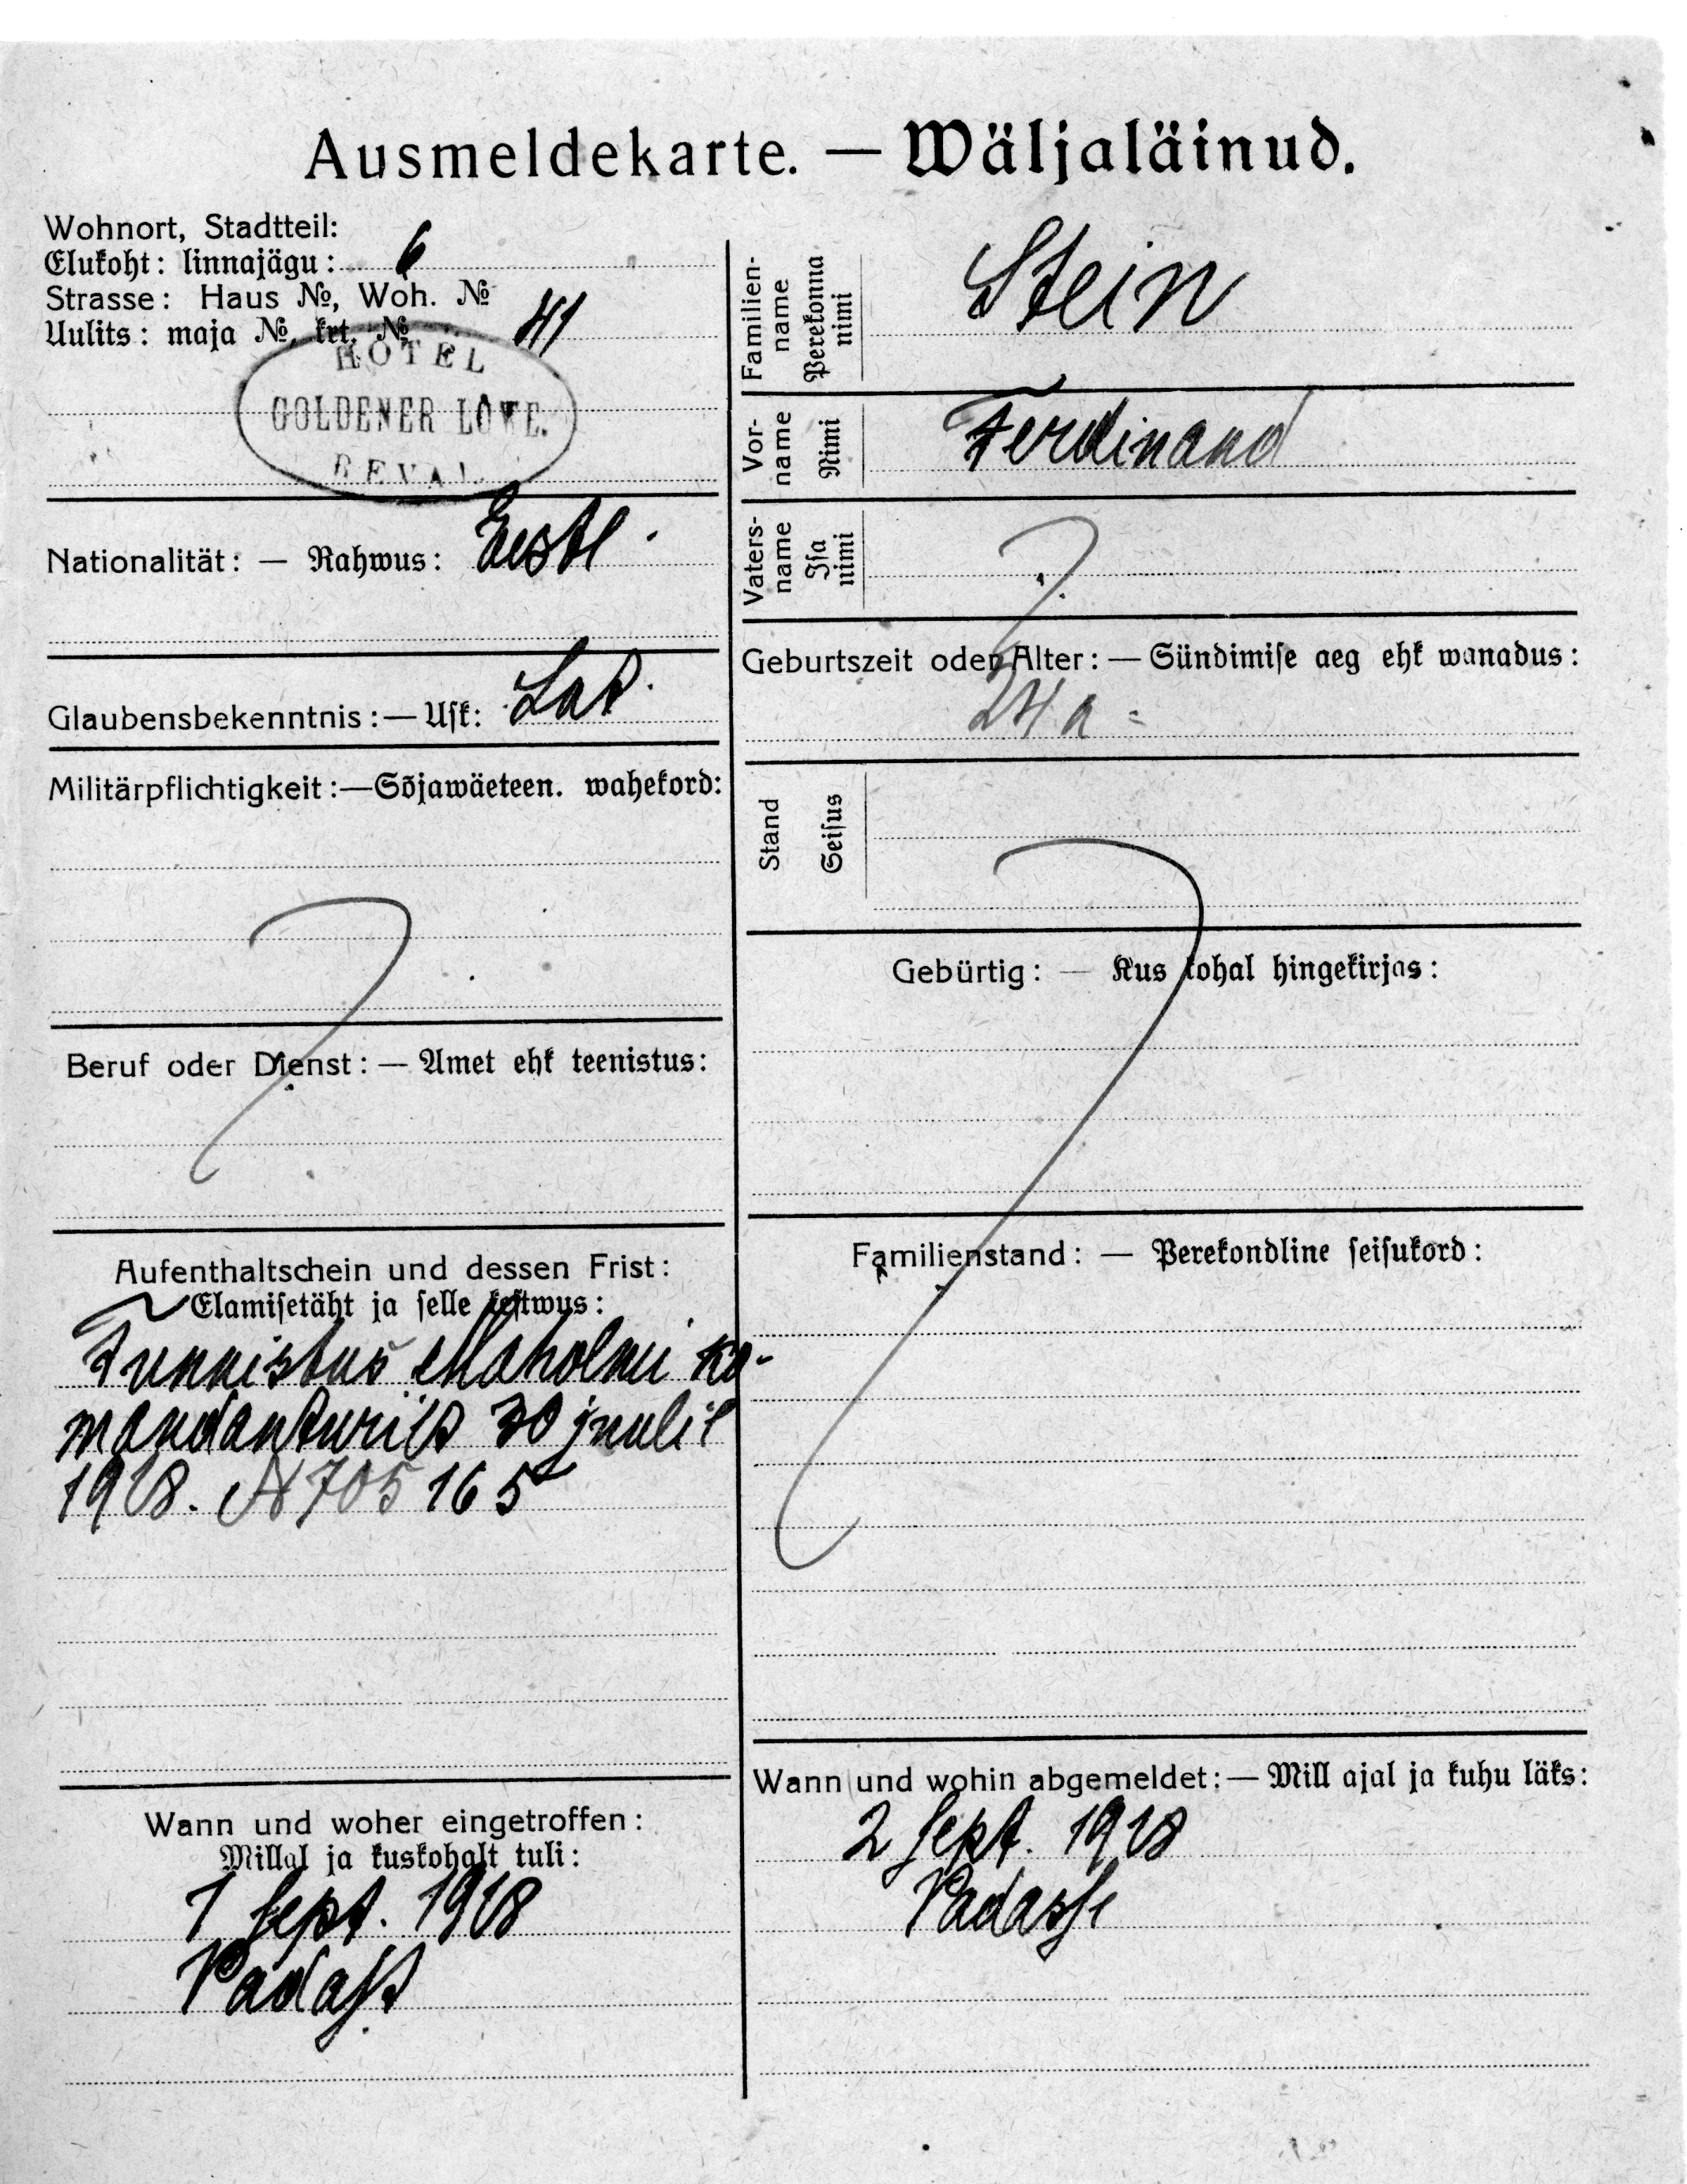 Ausmeldekarte. — Wäljaläinud.
Wohnort, Stadtteil:
Elukoht: linnajägu: 6
Strasse: Haus №, Woh. №
Uulits: maja №, krt. № 41
HOTEL
GOLDENER LÖWE.
REVAL
Nationalität: — Rahwus: Eestl.
Glaubensbekenntnis: — Usk:
Militärpflichtigkeit: — Sõjawäeteen. wahekord:
?
Beruf oder Dienst: — Amet ehk teenistus:
Aufenthaltschein und dessen Frist:
Elamisetäht ja selle kestwus:
Tunnistus Maholmi ko-
mandanturilt 30 juulil
1918. N 705 165
Wann und woher eingetroffen:
Millal ja kuskohalt tuli:
1 Sept. 1918
Padast
Familien-
name
Perekonna
nimi
Stein
Vor-
name
Nimi
Ferdinand
Vaters-
name
Isa
nimi
?
Geburtszeit oder Alter: — Sündimise aeg ehk wanadus:
24 a
Stand
Seisus
?
Gebürtig: — Kus kohal hingekirjas:
Familienstand: — Perekondline seisukord:
Wann und wohin abgemeldet: — Mill ajal ja kuhu läks:
2 Sept. 1918
Padasse